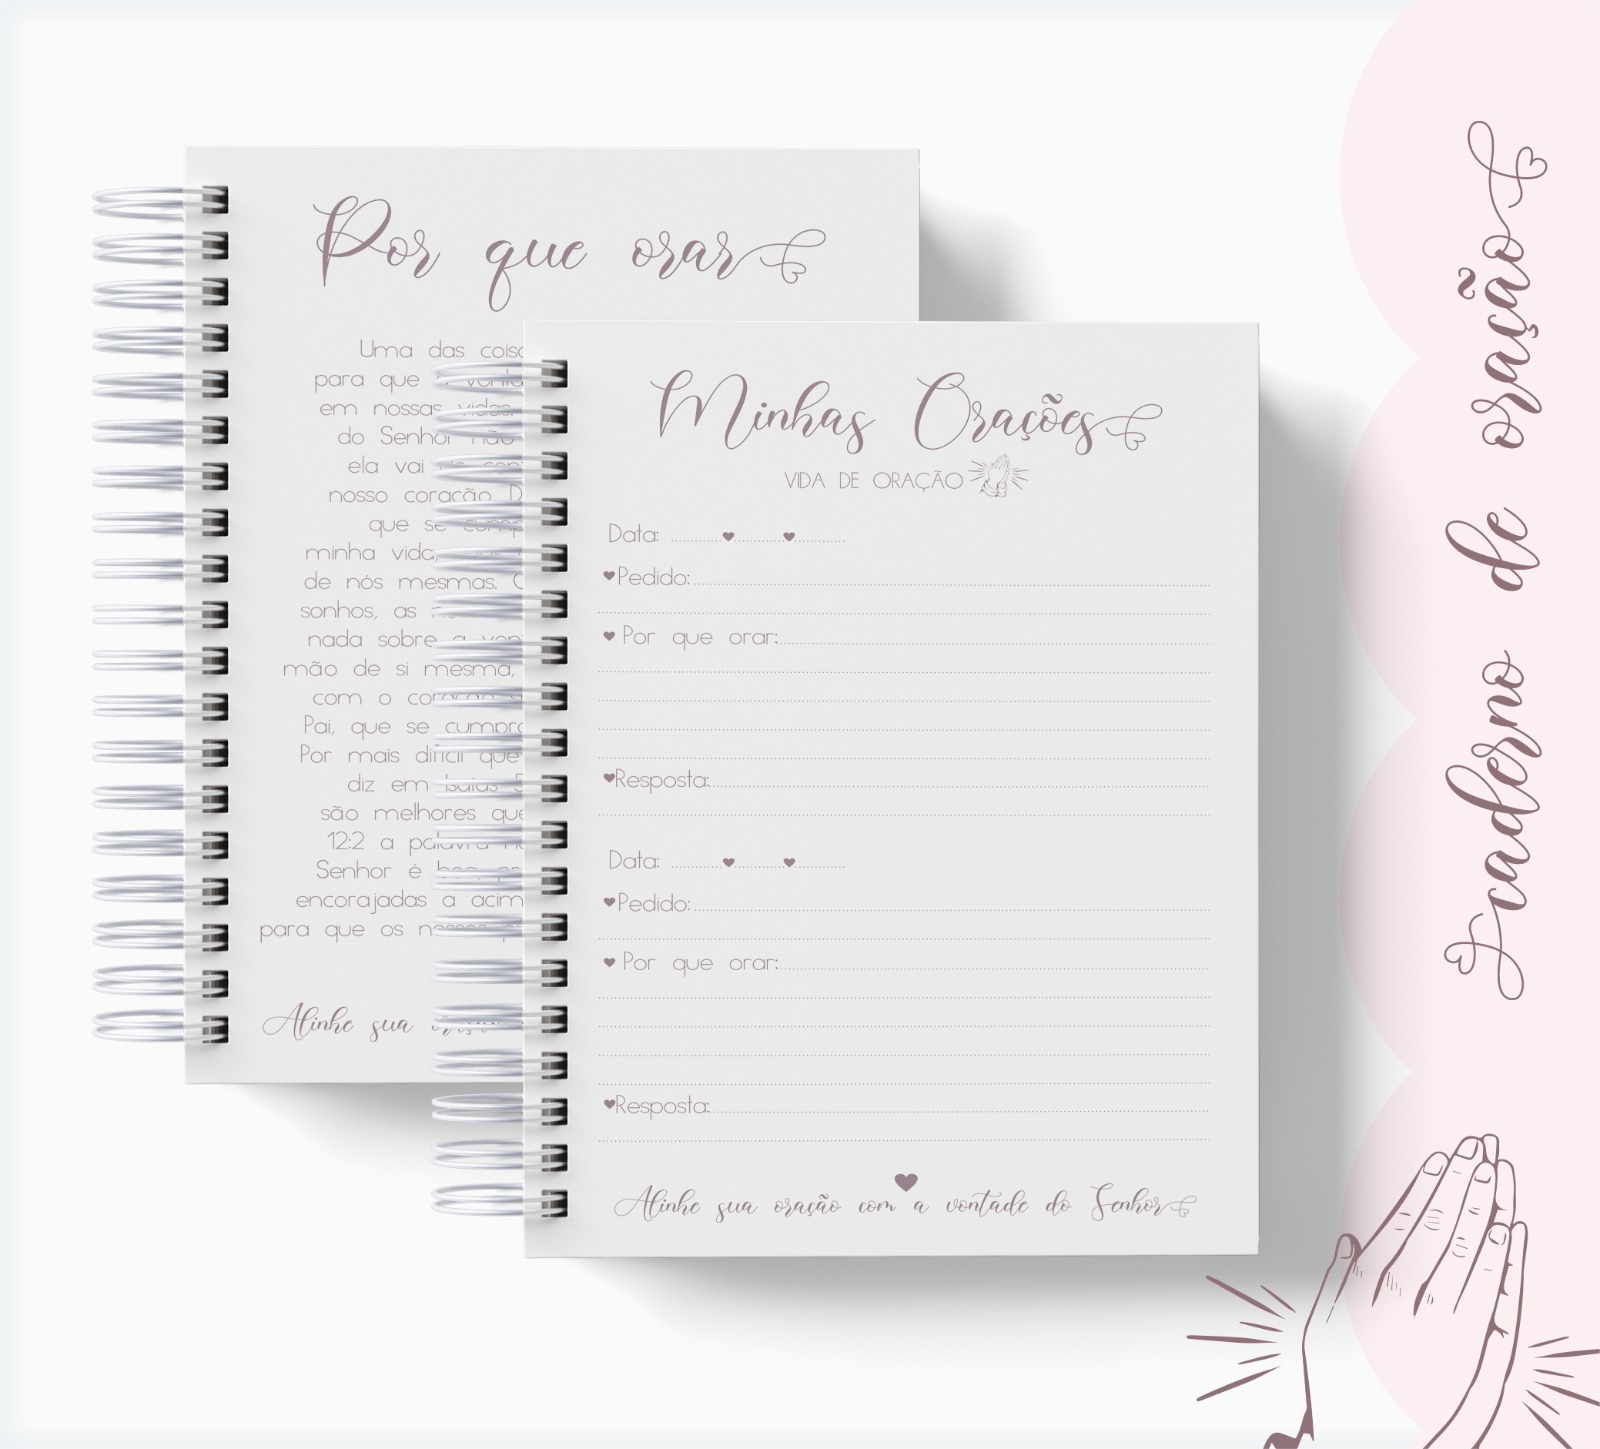 Por que orar
Uma das
para que
em nossas vidas.
do Senhor não
ela vai
nosso coração
que se
minha vida,
de nós mesmas.
sonhos, as
nada sobre a
mão de si mesma,
com o coração
Pai, que se
Por mais difícil que
diz em Isaías
são melhores que
12:2 a palavra
Senhor é
encorajadas a
para que os
Alinhe sua oração
Minhas Orações
VIDA DE ORAÇÃO
Data:
Pedido:
Por que orar:
Resposta:
Data:
Pedido:
Por que orar:
Resposta:
Alinhe sua oração com a vontade do Senhor
caderno de oração